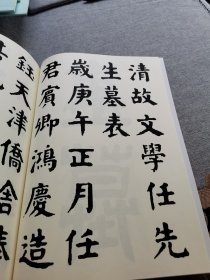 清故文學任先
生墓表
歲庚午正月任
君賓卿鴻慶造
鈺天津僑舍